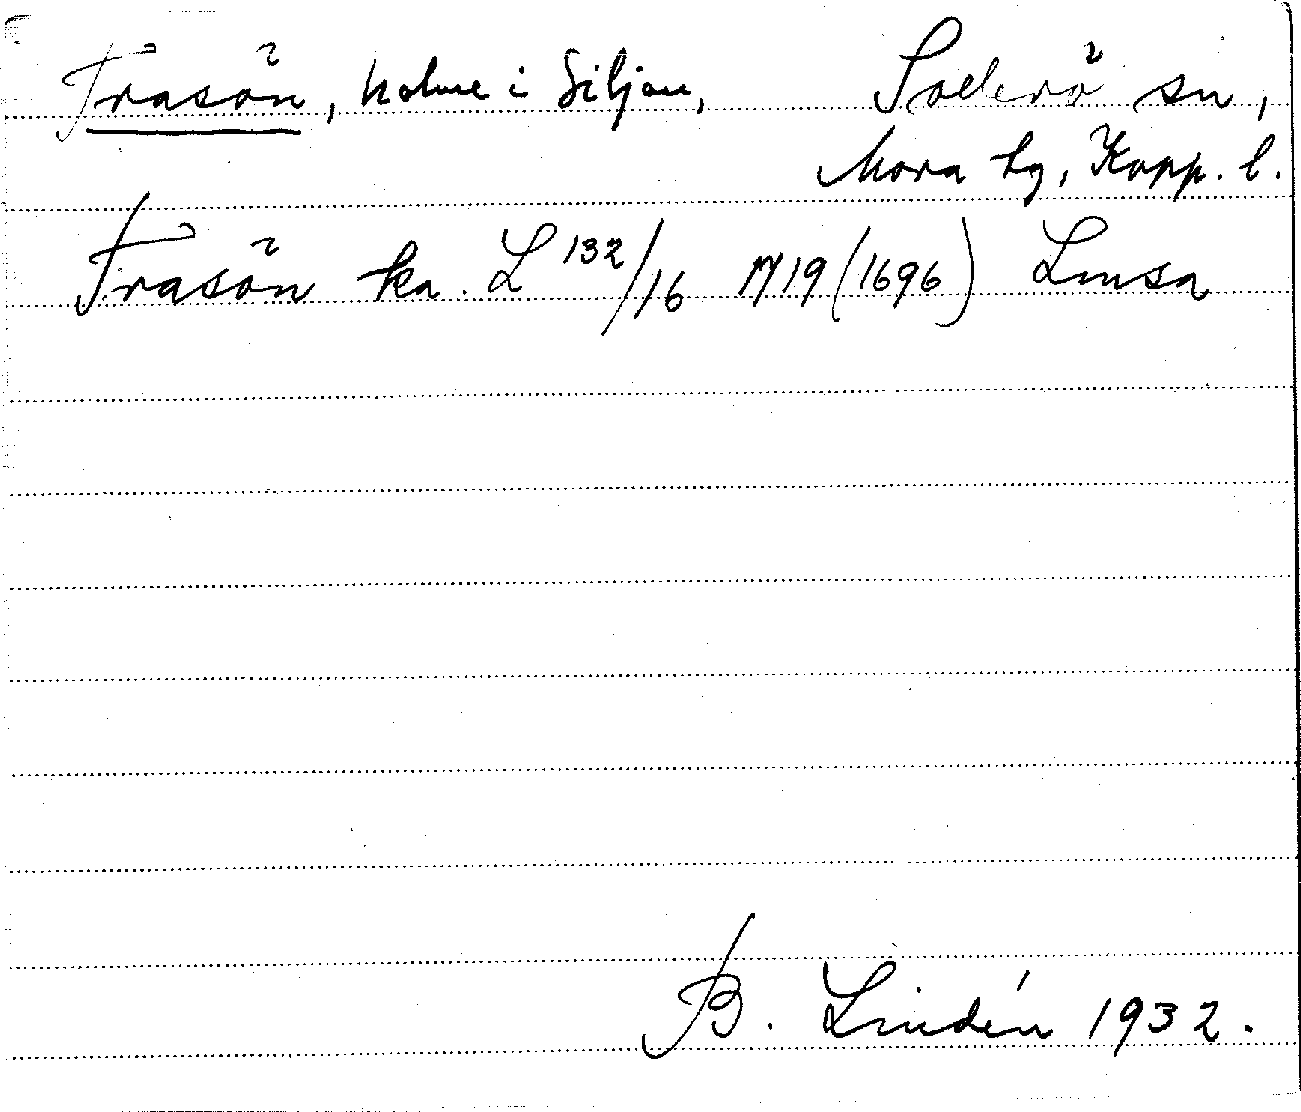 Trasön, holme i Siljan, Sollerö sn,
Mora tg, Kopp. l.
Trasön ka. L 132/16 N19 (1696) Lmsa
B. Lindén 1932.